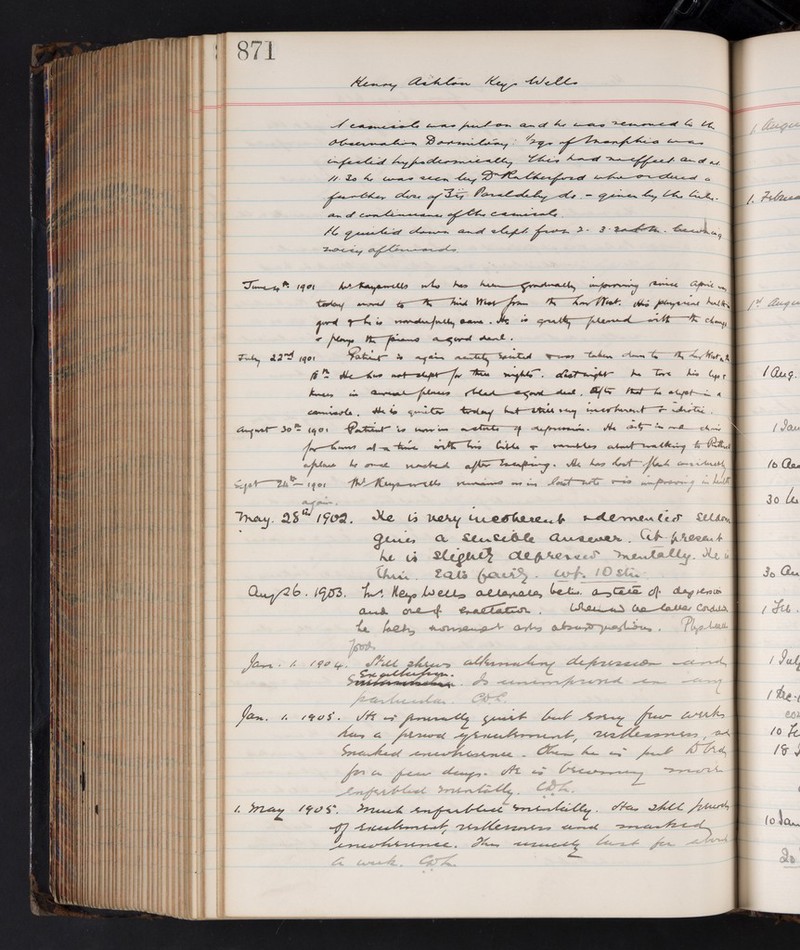 871
Henry Ashton Keys Wells
A camisole was put on and he was removed to the
Observation Dormitory. of Morphia was
injected hypodermically. This had no effect and at
11.30 he was seen by Dr Rutherford who ordered a
further dose of Paraldehyde - given by the tube.
and continuance of the camisole.
He quieted down and slept from
noisy afterwards
June 4th 1901 Mr Keyswells who has been gradually improving since April was
today moved to the third West from the Low West. His physical health is
good & he is wonderfully sane. He is greatly pleased with the change
& plays the piano a good deal.
July 22nd 1901 Patient is again acutely excited & was taken down to the Low West on the
18th He has not slept for three nights. Last night he tore his legs &
knees in several places & bled a good deal. After that he slept in a
camisole. He is quieter today but still very incoherent & idiotic.
August 30th 1901 Patient is now in a state of depression. He sits in one chair
for hours at a time with his bible & rambles about walking to
a place he once reached after escaping. He has lost flesh considerably
Sept 24th 1901 Mr Keyswells remains as in last note & is improving in health
again.
May. 28th 1902. He is very incoherent & demented seldom
gives a sensible answer. At present
he is slightly depressed mentally. He is
thin. Eats fairly. wt. 10 stn
Aug 26. 1903. Mr. Keys Wells alternates betw. a state of depression
and one of exaltation. When in the latter condition
he talks nonsense & asks absurd questions. Phys health
good.
Jan. 1. 1904. Still shews alternating depression and
Exaltation.
Is unimproved in any
particular. CDH.
Jan. 1. 1905. He is generally quiet but every few weeks
has a period of excitement, restlessness, and
marked incoherence. Then he is put to bed
for a few days. He is becoming more
enfeebled mentally. CDH.
1. May 1905. Much enfeebled mentally. Has still periods
of excitement, restlessness and marked
incoherence. This usually last for about
a week. CDH.
1. Augu
1. Februa
1st Augu
1 Aug.
1 Jan
10
30
30
1 Feb.
1 July
1 Dec.
10
18
10 Jan
20